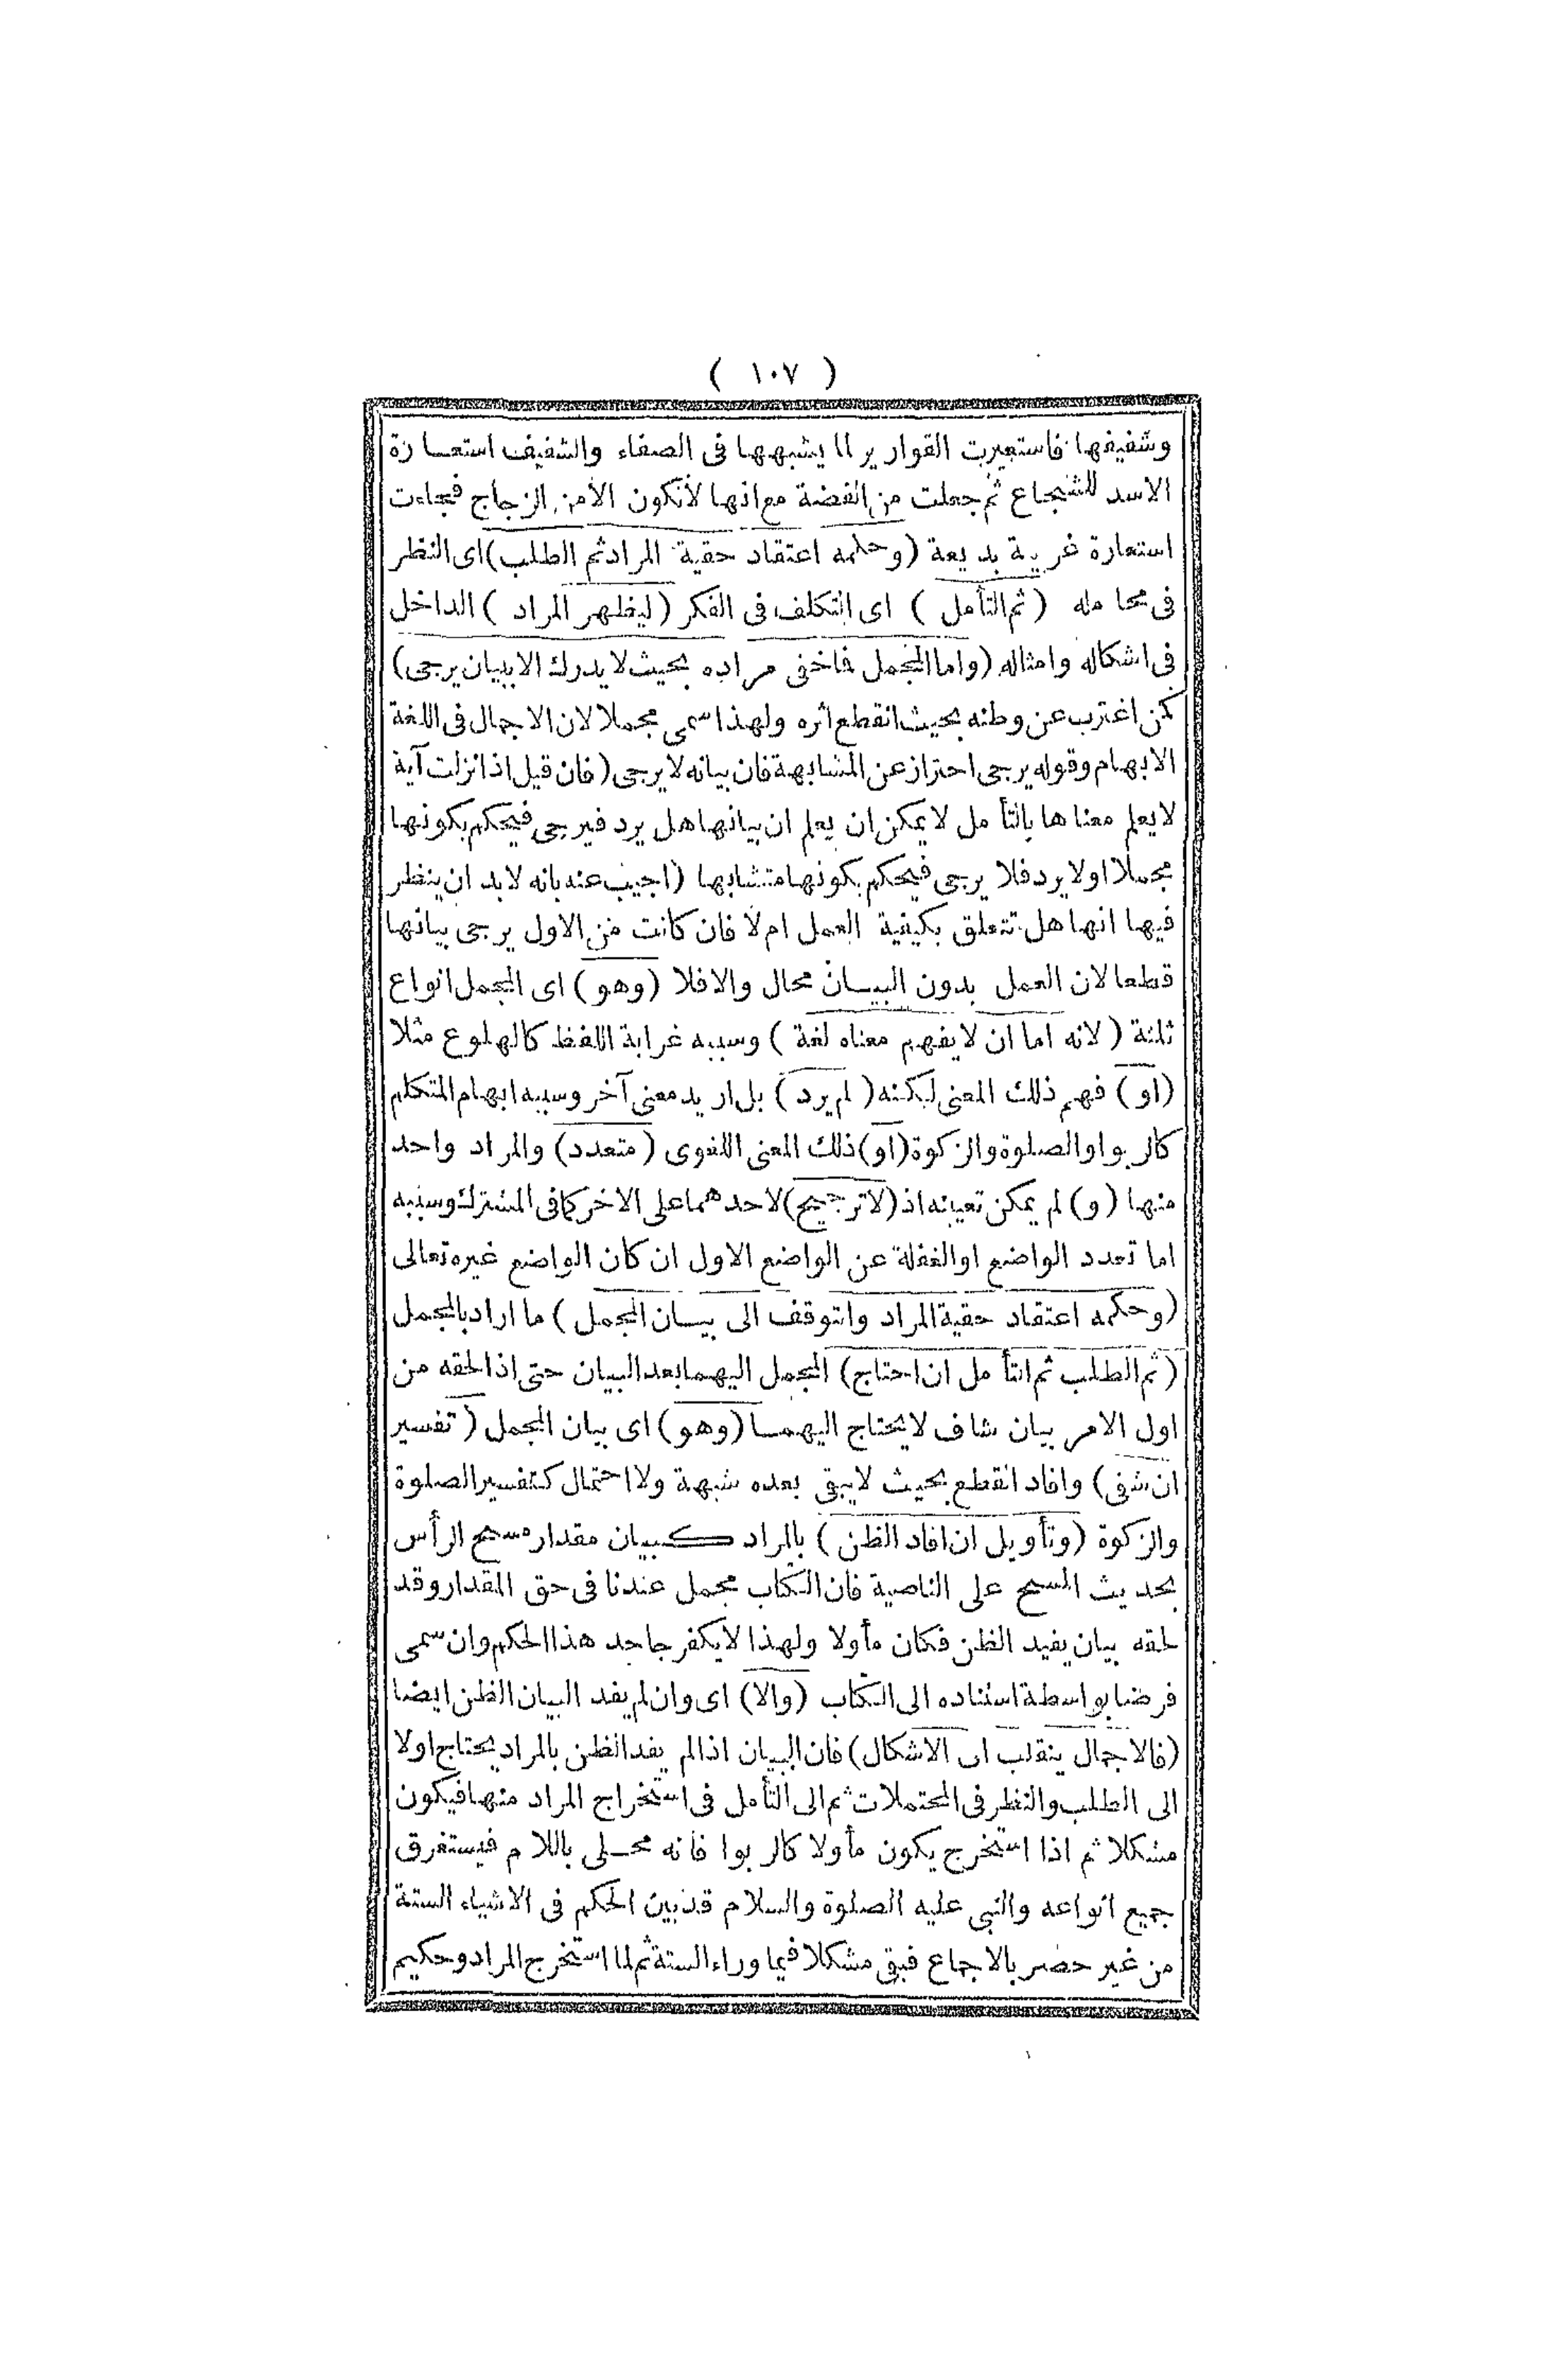 ( ١٠٧ )
وشفيفها فاستعيرت القوارير لما يشبهها فى الصفاء والشفيف استعارة
الاسد للشجاع ثم جعلت من الفضة مع انها لاتكون الامن الزجاج فجاءت
استعارة غريبة بديعة (وحكمه اعتقاد حقية المراد ثم الطلب) اى النظر
فى محامله (ثم التأمل) اى التكلف فى الفكر (ليظهر المراد) الداخل
فى اشكاله وامثاله (واما المجمل فاخفى مراده بحيث لا يدرك الا ببيان يرجى)
كمن اغترب عن وطنه بحيث انقطع اثره ولهذا سمى مجملا لان الاجمال فى اللغة
الابهام وقوله يرجى احتراز عن المتشابهة فان بيانه لا يرجى (فان قيل اذا نزلت آية
لا يعلم معناها بالتأمل لا يمكن ان يعلم ان بيانها هل يرد فيرجى فيحكم بكونها
مجملا او لا يرد فلا يرجى فيحكم بكونها متشابها (اجيب عنه بانه لا بد ان ينظر
فيها انها هل تتعلق بكيفية العمل ام لا فان كانت من الاول يرجى بيانها
قطعا لان العمل بدون البيان محال والا فلا (وهو) اى المجمل انواع
ثلثة (لانه اما ان لا يفهم معناه لغة) وسببه غرابة اللفظ كالهلوع مثلا
(او) فهم ذلك المعنى لكنه (لم يرد) بل اريد معنى آخر وسببه ابهام المتكلم
كالربوا والصلوة والزكوة (او) ذلك المعنى اللغوى (متعدد) والمراد واحد
منها (و) لم يمكن تعيينه اذ (لا ترجيح) لاحدهما على الاخر كما فى المشترك وسببه
اما تعدد الواضع او الغفلة عن الواضع الاول ان كان الواضع غيره تعالى
(وحكمه اعتقاد حقية المراد والتوقف الى بيان المجمل) ما اراد بالمجمل
(ثم الطلب ثم التأمل ان احتاج) المجمل اليهما بعد البيان حتى اذا لحقه من
اول الامر بيان شاف لا يحتاج اليهما (وهو) اى بيان المجمل (تفسير
ان شفى) وافاد القطع بحيث لا يبقى بعده شبهة ولا احتمال كتفسير الصلوة
والزكوة (وتأويل ان افاد الظن) بالمراد كبيان مقدار مسح الرأس
بحديث المسح على الناصية فان الكتاب مجمل عندنا فى حق المقدار وقد
لحقه بيان يفيد الظن فكان مأولا ولهذا لا يكفر جاحد هذا الحكم وان سمى
فرضا بواسطة استناده الى الكتاب (والا) اى وان لم يفد البيان الظن ايضا
(فالاجمال ينقلب الى الاشكال) فان البيان اذا لم يفد الظن بالمراد يحتاج اولا
الى الطلب والنظر فى المحتملات ثم الى التأمل فى استخراج المراد منها فيكون
مشكلا ثم اذا استخرج يكون مأولا كالربوا فانه محلى باللام فيستغرق
جميع انواعه والنبى عليه الصلوة والسلام قد بين الحكم فى الاشياء الستة
من غير حصر بالاجماع فبقى مشكلا فيما وراء الستة ثم لما استخرج المراد وحكيم